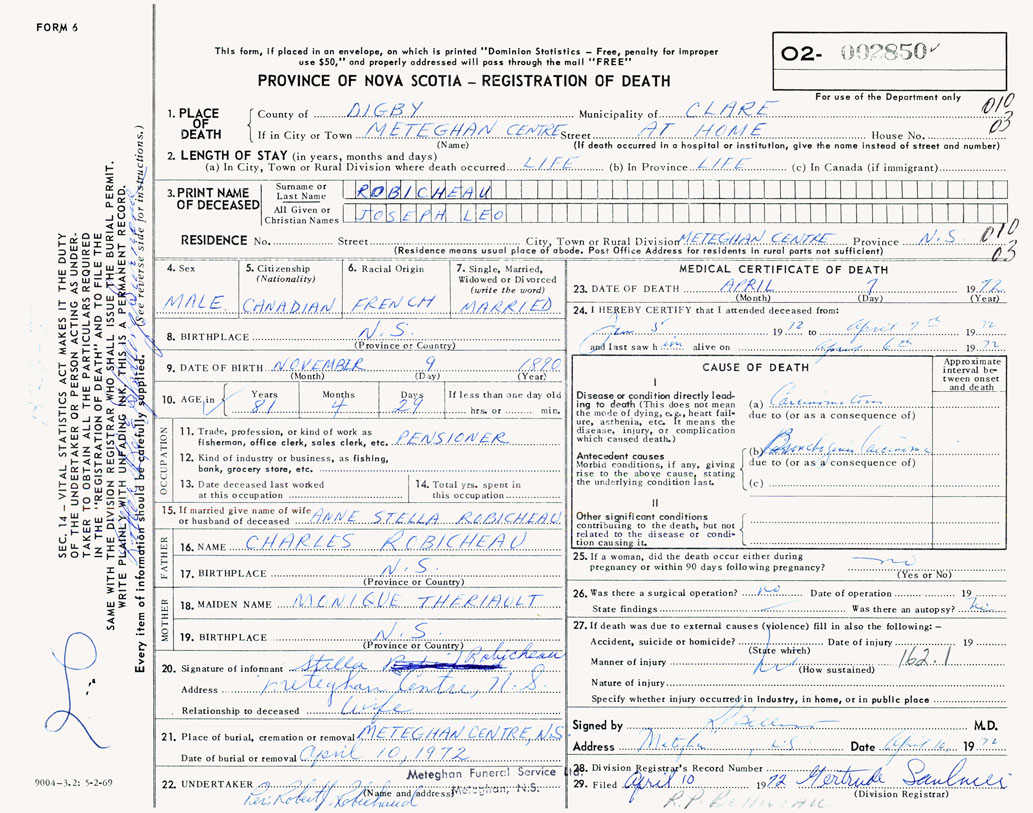 FORM 6
This form, if placed in an envelope, on which is printed "Dominion Statistics – Free, penalty for improper
use $50," and properly addressed will pass through the mail "FREE"
PROVINCE OF NOVA SCOTIA – REGISTRATION OF DEATH
02- 002850
For use of the Department only
010
03
1. PLACE OF DEATH
County of DIGBY Municipality of CLARE
If in City or Town METEGHAN CENTRE Street AT HOME House No.
(Name) (If death occurred in a hospital or institution, give the name instead of street and number)
2. LENGTH OF STAY (in years, months and days)
(a) In City, Town or Rural Division where death occurred LIFE (b) In Province LIFE (c) In Canada (if immigrant)
3. PRINT NAME OF DECEASED
Surname or Last Name ROBICHEAU
All Given or Christian Names JOSEPH LEO
RESIDENCE No. Street City, Town or Rural Division METEGHAN CENTRE Province N.S
(Residence means usual place of abode. Post Office Address for residents in rural parts not sufficient)
010
03
4. Sex
MALE
5. Citizenship
(Nationality)
CANADIAN
6. Racial Origin
FRENCH
7. Single, Married,
Widowed or Divorced
(write the word)
MARRIED
8. BIRTHPLACE N.S.
(Province or Country)
9. DATE OF BIRTH NOVEMBER 9 1890
(Month) (Day) (Year)
10. AGE in Years Months Days If less than one day old
81 4 29 hrs. or min.
OCCUPATION
11. Trade, profession, or kind of work as
fisherman, office clerk, sales clerk, etc. PENSIONER
12. Kind of industry or business, as fishing,
bank, grocery store, etc.
13. Date deceased last worked
at this occupation
14. Total yrs. spent in
this occupation
15. If married give name of wife
or husband of deceased ANNE STELLA ROBICHEAU
FATHER
16. NAME CHARLES ROBICHEAU
17. BIRTHPLACE N.S.
(Province or Country)
MOTHER
18. MAIDEN NAME MONIQUE THERIAULT
19. BIRTHPLACE N.S.
(Province or Country)
20. Signature of informant Stella Robicheau
Address Meteghan Centre, N.S.
Relationship to deceased Wife
21. Place of burial, cremation or removal METEGHAN CENTRE, N.S
Date of burial or removal April 10, 1972
22. UNDERTAKER Meteghan Funeral Service Ltd.
(Name and address) Meteghan, N.S.
Per: Robert J. Robichaud
MEDICAL CERTIFICATE OF DEATH
23. DATE OF DEATH APRIL 7 1972
(Month) (Day) (Year)
24. I HEREBY CERTIFY that I attended deceased from:
Jan 5 1972 to April 7th 1972
and last saw him alive on April 6th 1972
CAUSE OF DEATH
Approximate
interval be-
tween onset
and death
I
Disease or condition directly lead-
ing to death (This does not mean
the mode of dying, e.g., heart fail-
ure, asthenia, etc. It means the
disease, injury, or complication
which caused death.)
(a) Carcinomatosis
due to (or as a consequence of)
Antecedent causes
Morbid conditions, if any, giving
rise to the above cause, stating
the underlying condition last.
(b) Bronchogenic Carcinoma
due to (or as a consequence of)
(c)
II
Other significant conditions
contributing to the death, but not
related to the disease or condi-
tion causing it.
25. If a woman, did the death occur either during
pregnancy or within 90 days following pregnancy? no
(Yes or No)
26. Was there a surgical operation? no Date of operation 19
State findings Was there an autopsy? No
27. If death was due to external causes (violence) fill in also the following:–
Accident, suicide or homicide? Date of injury 19
(State which)
Manner of injury 162.1
(How sustained)
Nature of injury
Specify whether injury occurred in industry, in home, or in public place
Signed by M.D.
Address Meteghan N.S Date April 1972
28. Division Registrar's Record Number
29. Filed April 10 1972 Gertrude Saulnier
(Division Registrar)
R.P. BELLIVEAU
SEC. 14 – VITAL STATISTICS ACT MAKES IT THE DUTY
OF THE UNDERTAKER OR PERSON ACTING AS UNDER-
TAKER TO OBTAIN ALL THE PARTICULARS REQUIRED
IN THE "REGISTRATION OF DEATH" AND TO FILE THE
SAME WITH THE DIVISION REGISTRAR WHO SHALL ISSUE THE BURIAL PERMIT.
WRITE PLAINLY WITH UNFADING INK. THIS IS A PERMANENT RECORD.
Every item of information should be carefully supplied. (See reverse side for instructions.)
9004-3.2: 5-2-69